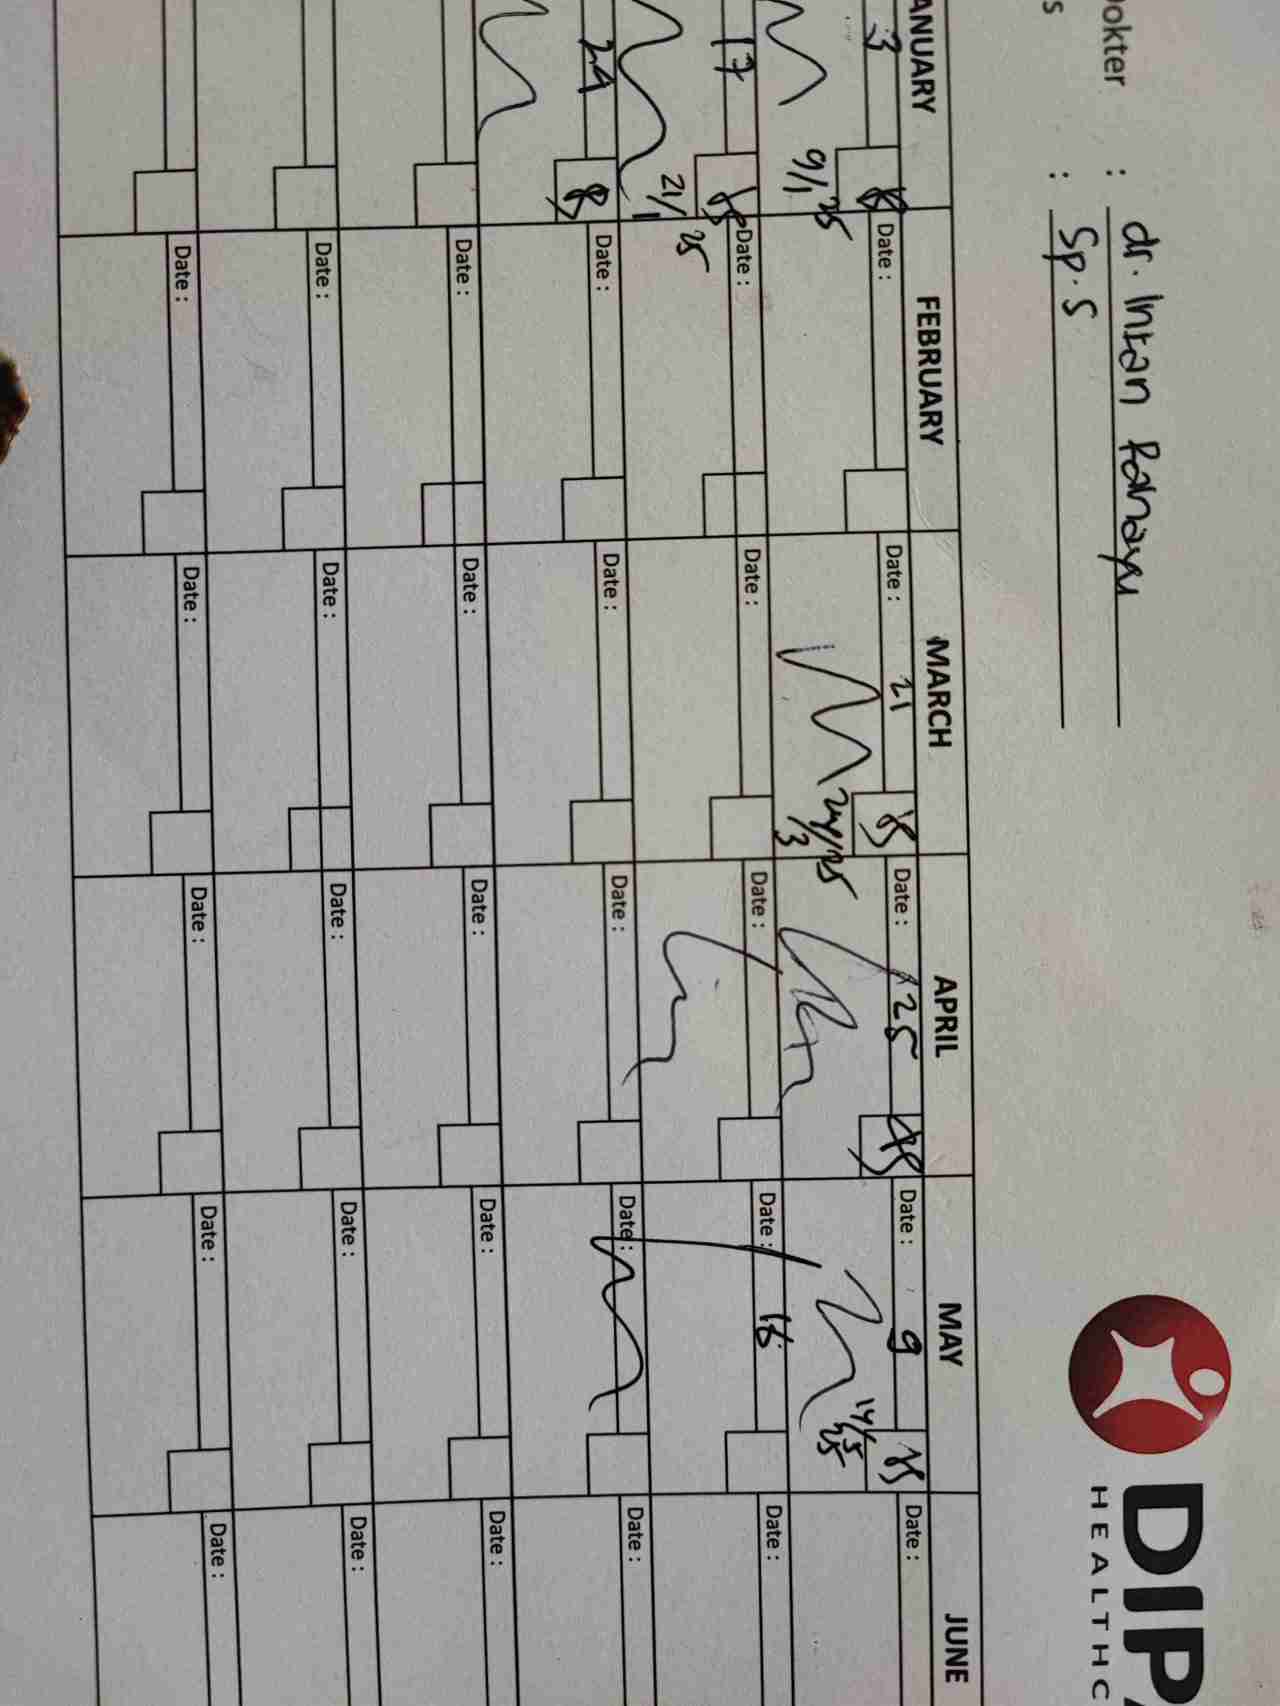 DIPA
HEALTHC
okter : dr. Intan Rahayu
s : Sp.S
ANUARY FEBRUARY MARCH APRIL MAY JUNE
3 Date : Date : 21 Date : 25 Date : 9 Date :
9/1 25 24/3 25 14/5 25
17 Date : Date : Date : Date : 16 Date :
21/1 25
24 Date : Date : Date : Date : Date :
Date : Date : Date : Date : Date :
Date : Date : Date : Date : Date :
Date : Date : Date : Date : Date :